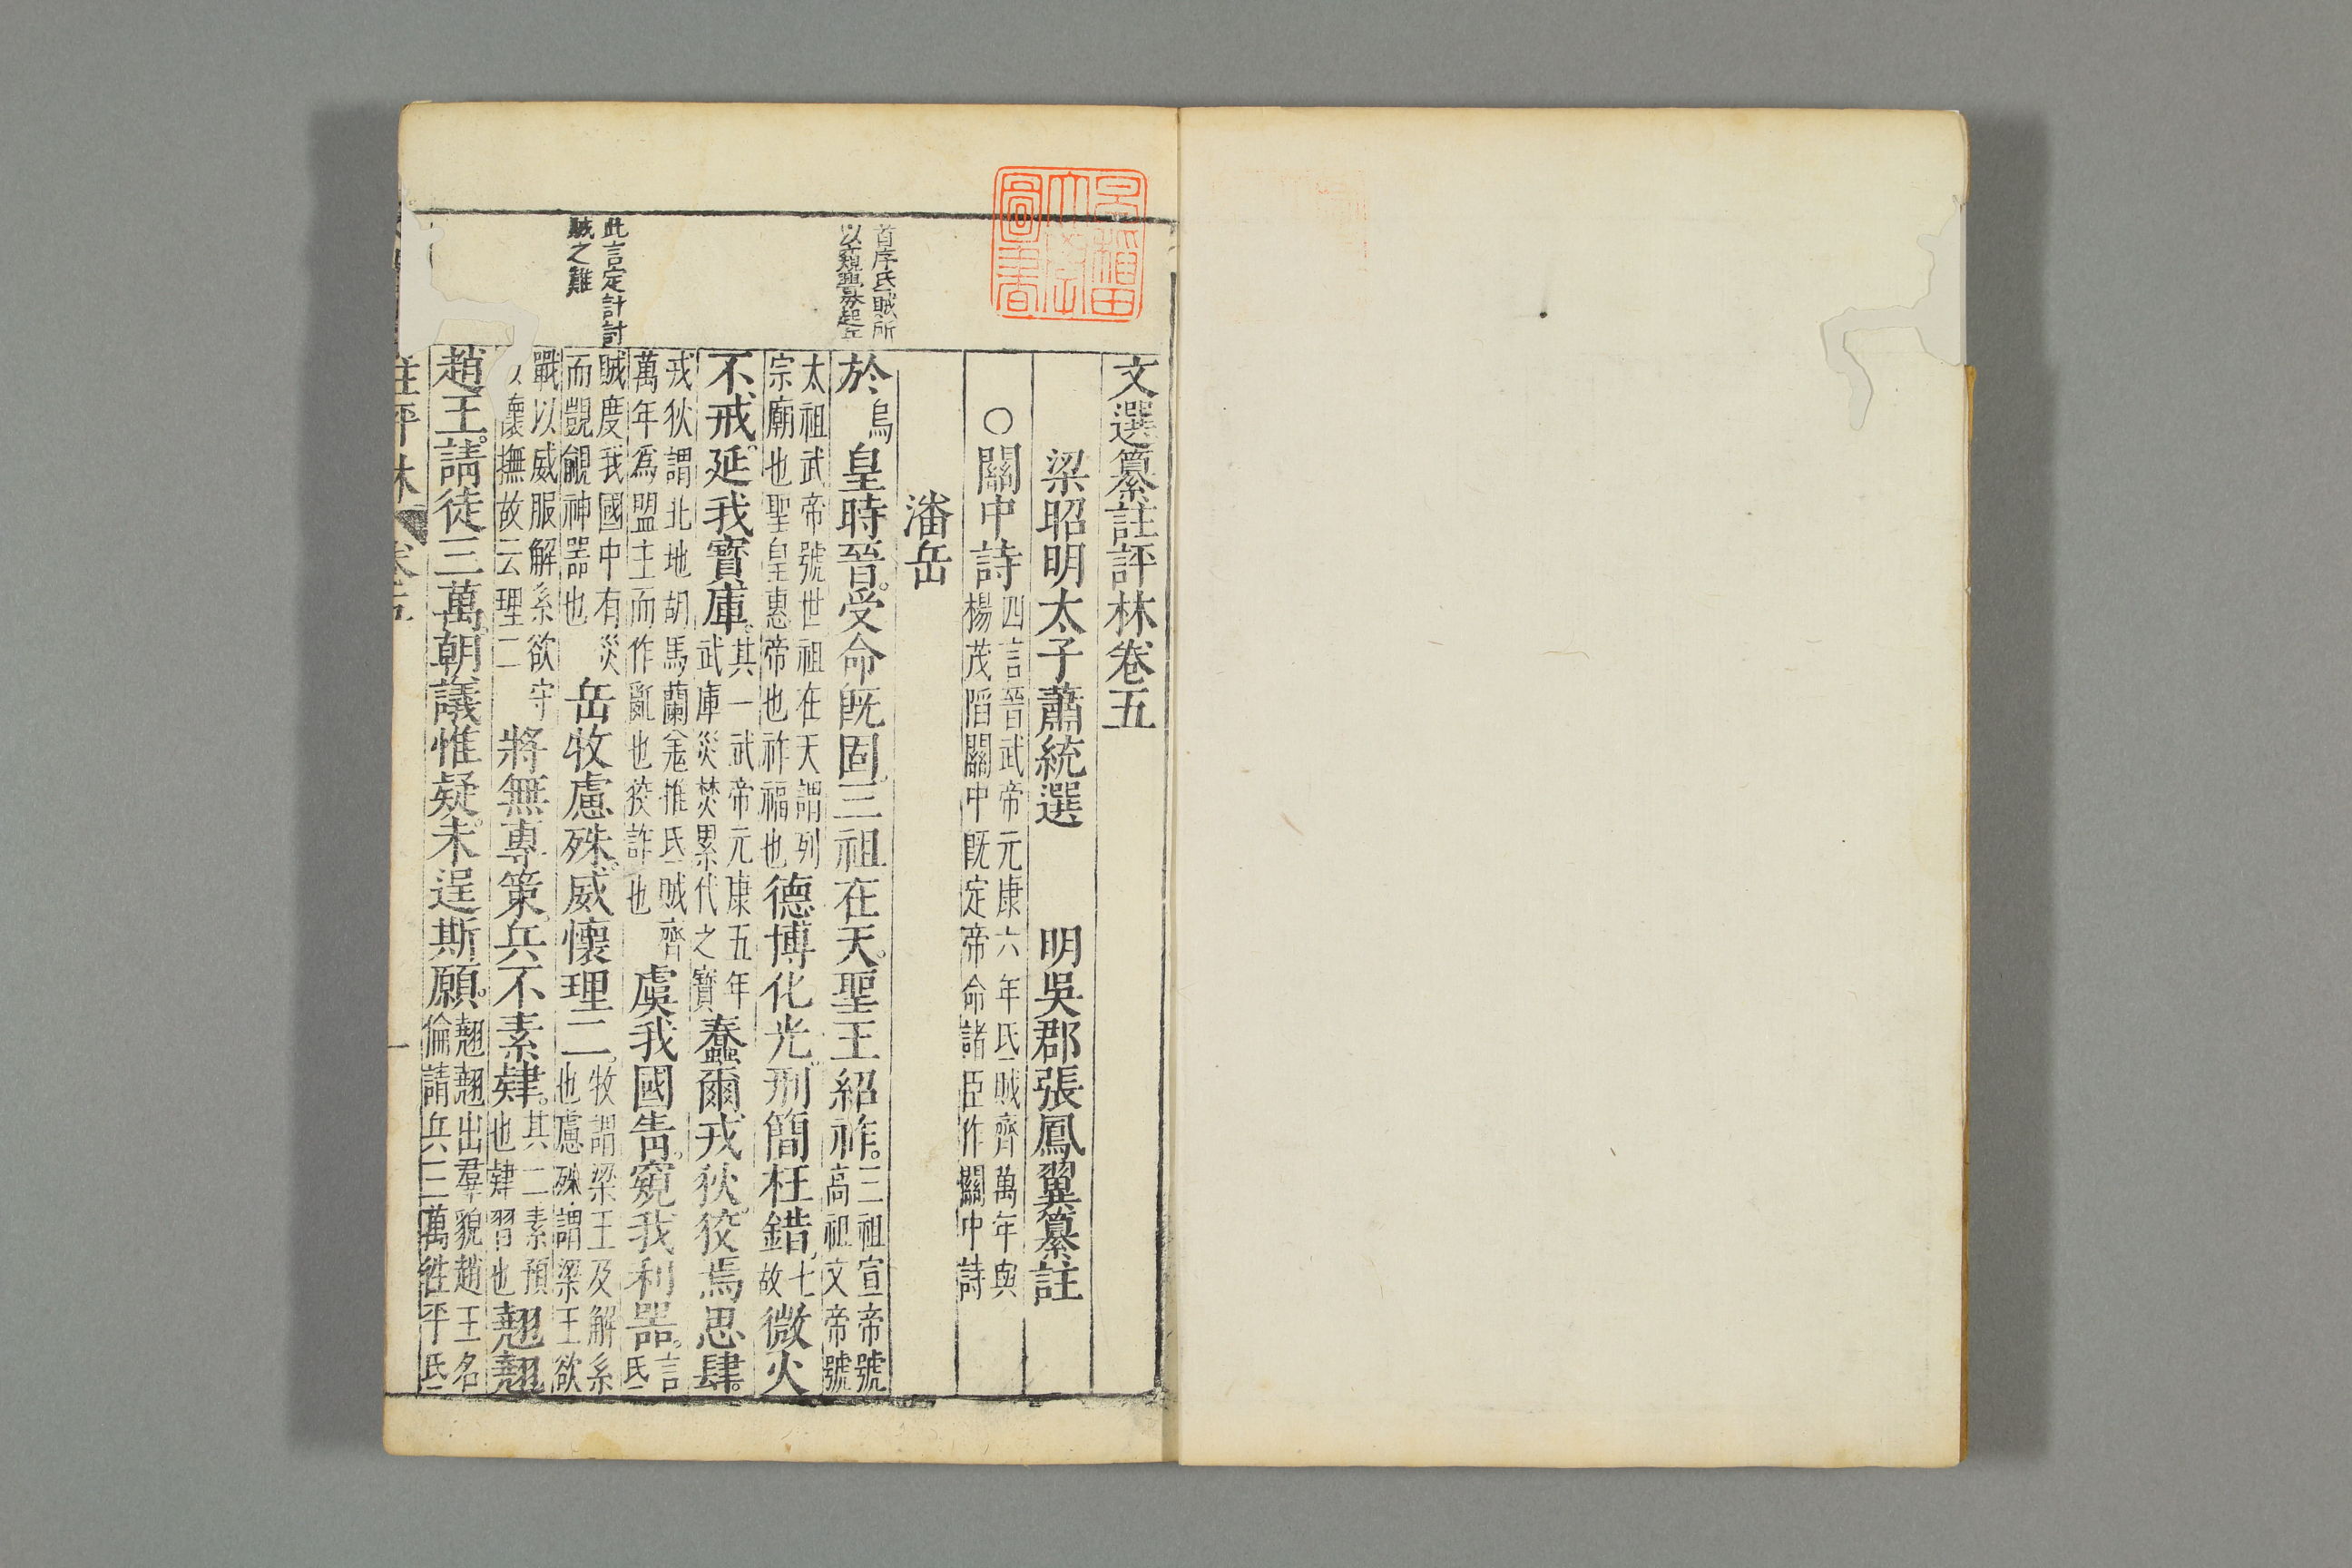 早稲田
大學
圖書
文選纂註評林卷五
梁昭明太子蕭統選 明吳郡張鳳翼纂註
○關中詩 四言晉武帝元康六年氐賊齊萬年與
楊茂蹈關中既定帝命諸臣作關中詩
潘岳
首序氐賊所
以窺
於烏皇時晉。受命既固。三祖在天。聖王紹祚。三祖宣帝號
高祖文帝號
太祖武帝號世祖在天謂列
宗廟也聖皇惠帝也祚福也
德博化光。刑簡枉錯。七故微火
不戒。延我寶庫。其一武帝元康五年
武庫災焚累代之寶
蠢爾戎狄。狡焉思肆。
戎狄謂北地胡馬蘭羌推氐賊齊
萬年為盟主而作亂也狡詐也
虞我國眚。窺我利器。言氐
此言定計討
賊之難
賊度我國中有災
而覬覦神器也
岳牧慮殊。威懷理二。牧謂梁王及解系
也慮殊謂梁王欲
戰以威服解系欲守
懷撫故云理二
將無專策。兵不素肄。其二素預
也肄習也
翹翹
趙王。請徒三萬。朝議惟疑。未逞斯願。翹翹出羣貌趙王名
倫請兵三萬往平氐
註評林 卷五 一